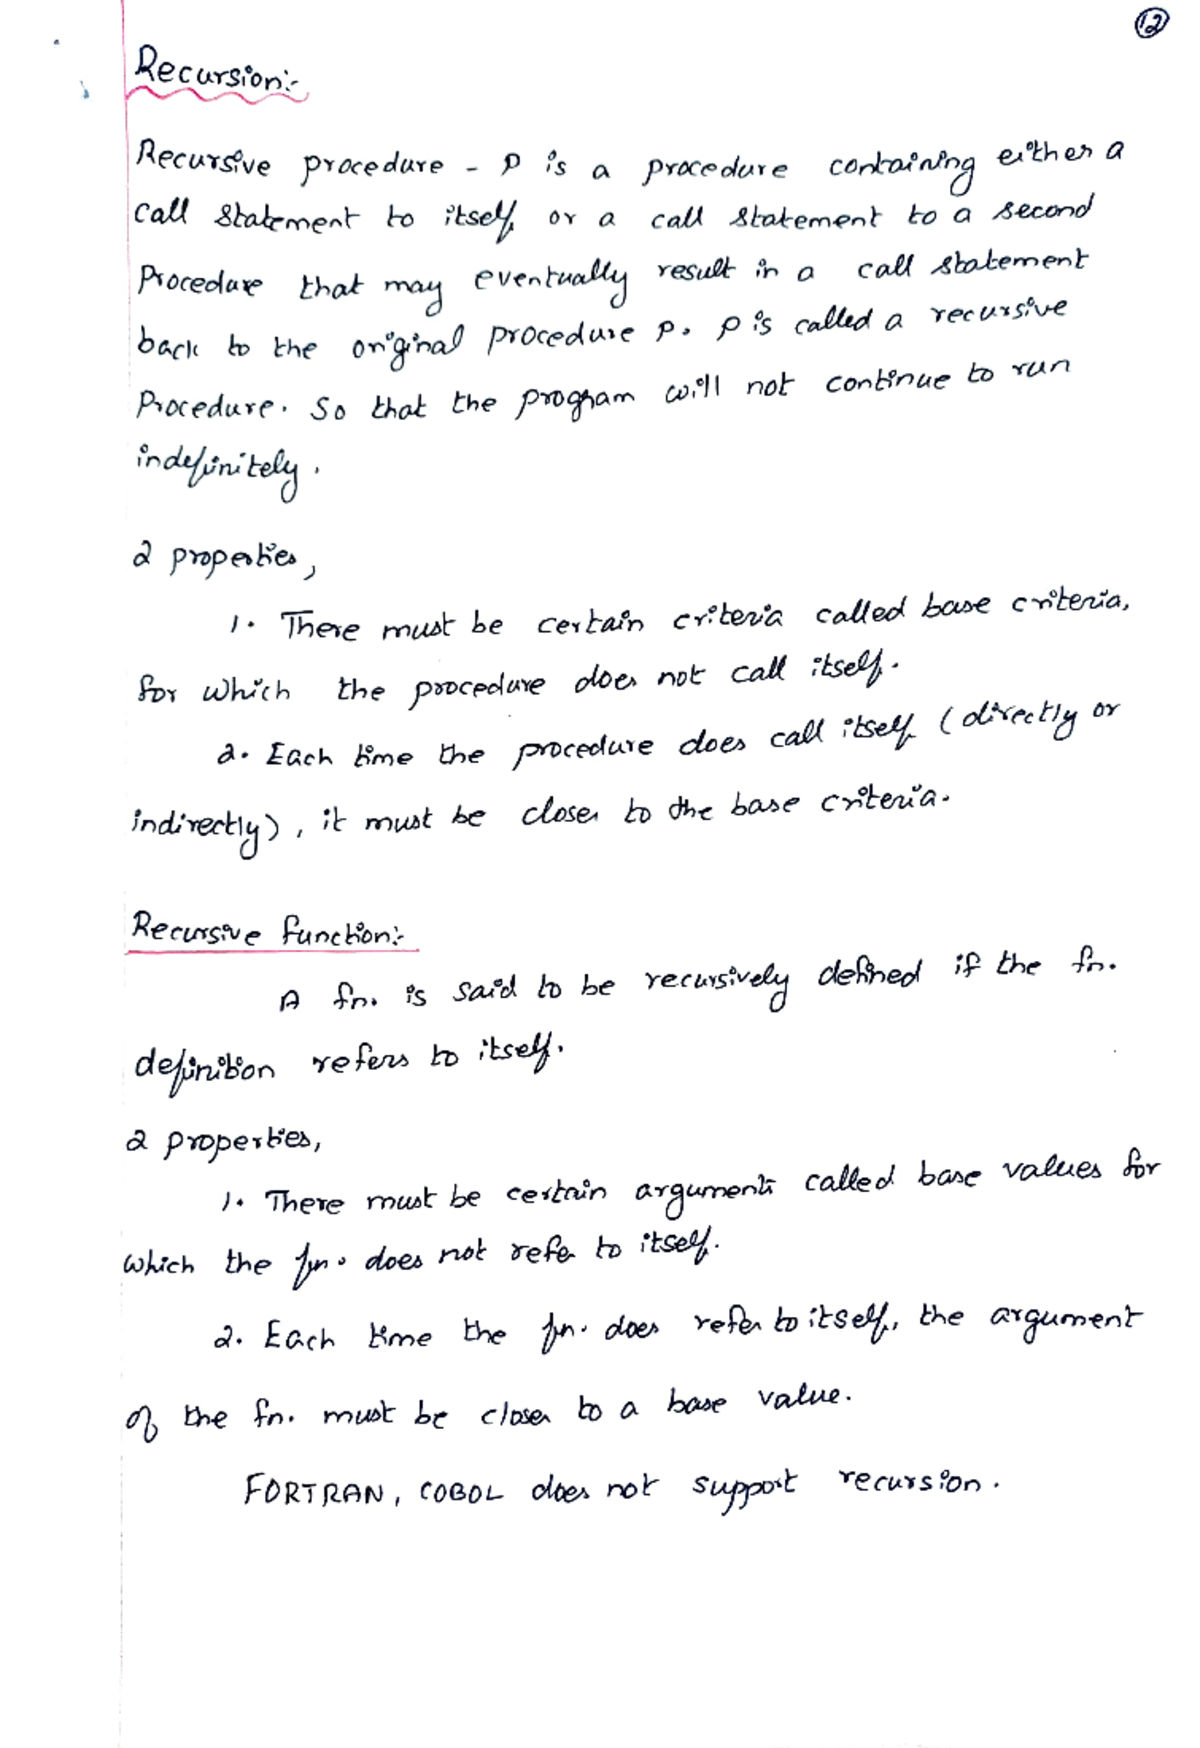 12
Recursion:-
Recursive procedure - P is a procedure containing either a
call statement to itself or a call statement to a second
Procedure that may eventually result in a call statement
back to the original procedure P. P is called a recursive
Procedure. So that the program will not continue to run
indefinitely.
2 properties,
1. There must be certain criteria called base criteria,
for which the procedure does not call itself.
2. Each time the procedure does call itself (directly or
indirectly), it must be closer to the base criteria.
Recursive function:-
A fn. is said to be recursively defined if the fn.
definition refers to itself.
2 properties,
1. There must be certain arguments called base values for
which the fn. does not refer to itself.
2. Each time the fn. does refer to itself, the argument
of the fn. must be closer to a base value.
FORTRAN, COBOL does not support recursion.